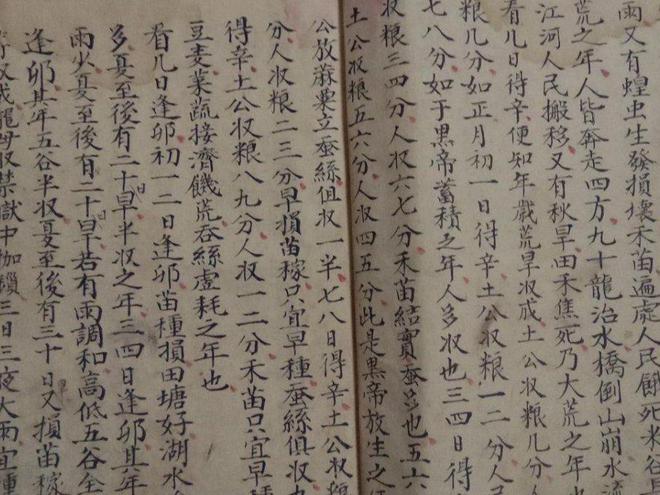 雨又有蝗虫生發損壞禾苗遍處人民餓死米谷
荒之年人皆奔走四方九十龍治水橋倒山崩水流
江河人民搬移又有秋旱田禾焦死乃大荒之年
看几日得辛便知年歲荒旱収成土公収粮几分
粮几分如正月初一日得辛土公収粮一二分人
七八分如于黑帝蓄積之年人多収也三四日得
収粮三四分人収六七分禾苗結實蚕多也五六
土公収粮五六分人収四五分此是黑帝放生之
公放蔴粟立蚕絲俱収一半七八日得辛土公収
分人収粮二三分早損苗稼只宜早種蚕絲俱収
得辛土公収粮八九分人収一二分禾苗只宜早種
豆麦菜蔬接濟饑荒吞絲虛耗之年也
看几日逢卯初一二日逢卯苗種損田塘好湖水
多夏至後有二十日旱半収之年三四日逢卯其年
雨少夏至後有二十日旱若有雨調和高低五谷全
逢卯其年五谷半収夏至後有三十日又損苗稼
収戒龍母収禁獄中枷鎖三日三夜大雨宜種